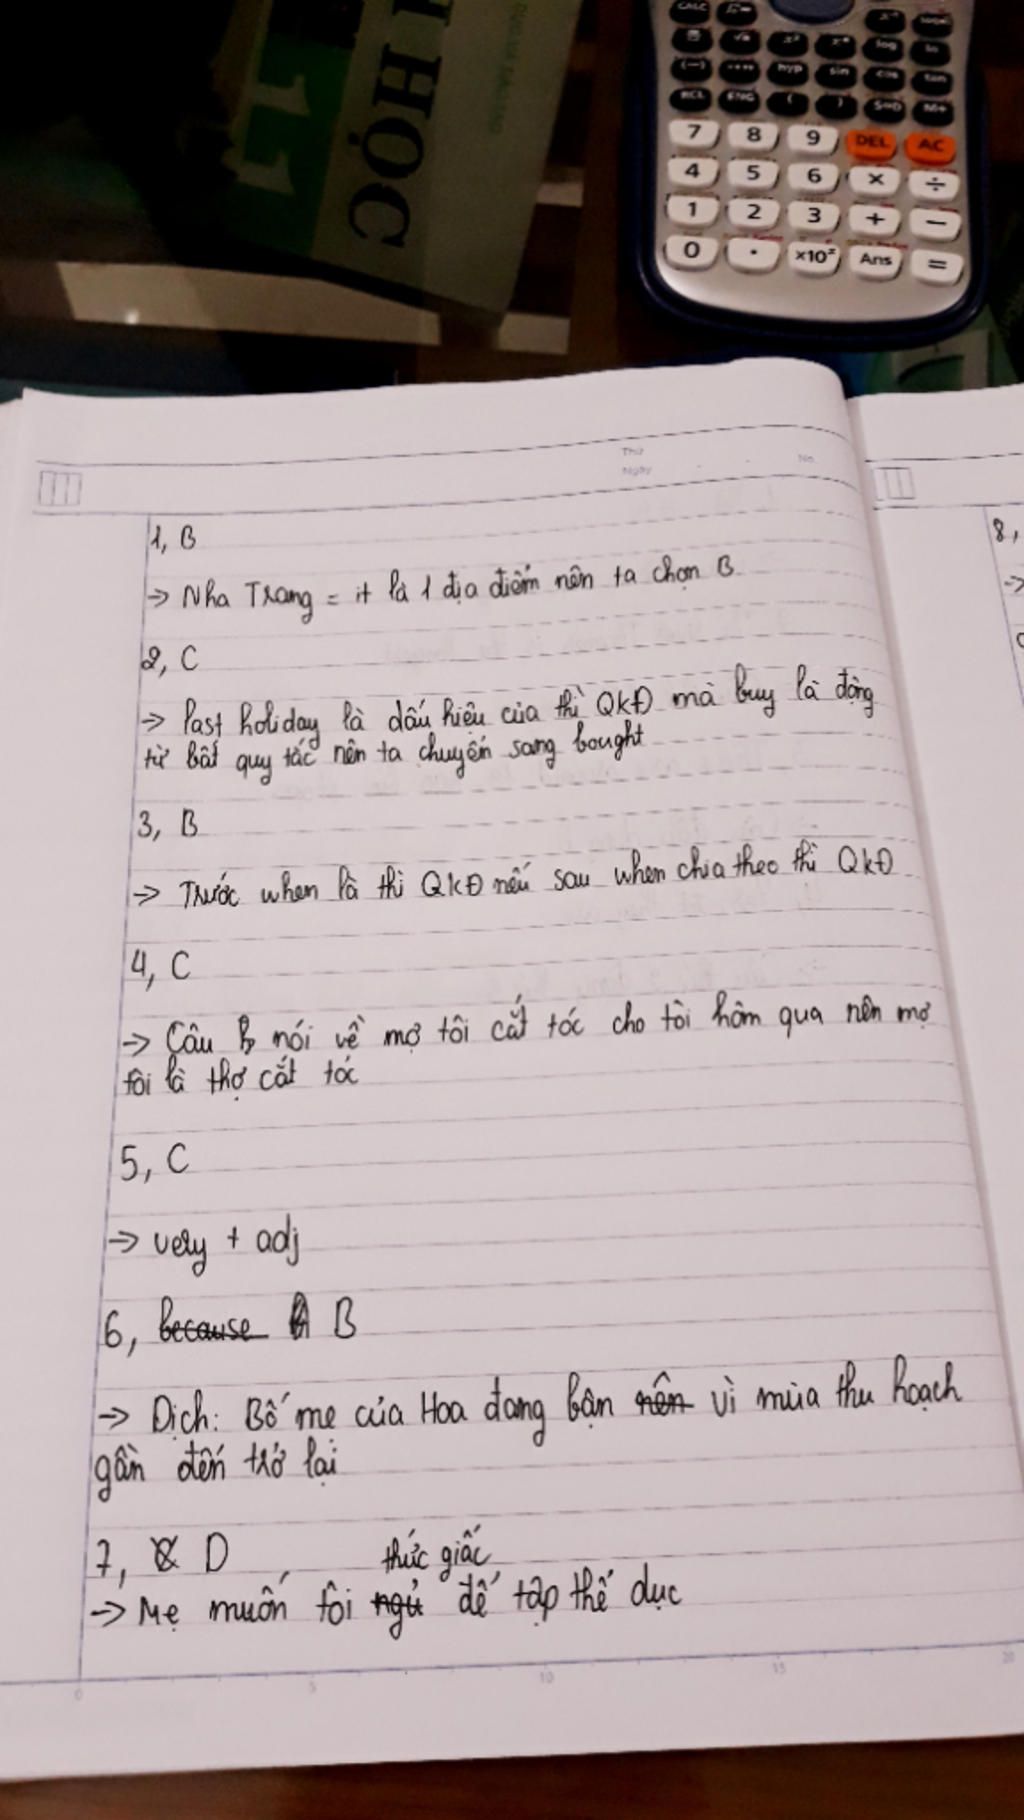 HỌC
11
CALC
x⁻¹
x²
log
ln
(−)
hyp
sin
cos
tan
RCL
ENG
(
)
S⇔D
M+
7 8 9 DEL AC
4 5 6 × ÷
1 2 3 + −
0 . ×10ˣ Ans =
Thứ
Ngày
No.
1, B
→ Nha Trang = it là 1 địa điểm nên ta chọn B
2, C
→ Past holiday là dấu hiệu của thì QKĐ mà buy là động
từ bất quy tắc nên ta chuyển sang bought
3, B
→ Trước when là thì QKĐ nếu sau when chia theo thì QKĐ
4, C
→ Câu B nói về mợ tôi cắt tóc cho tôi hôm qua nên mợ
tôi là thợ cắt tóc
5, C
→ very + adj
6, because B
→ Dịch: Bố mẹ của Hoa đang bận nên vì mùa thu hoạch
gần đến trở lại
7, C D
thức giấc
→ Mẹ muốn tôi ngủ để tập thể dục
8,
→
0 5 10 15 20